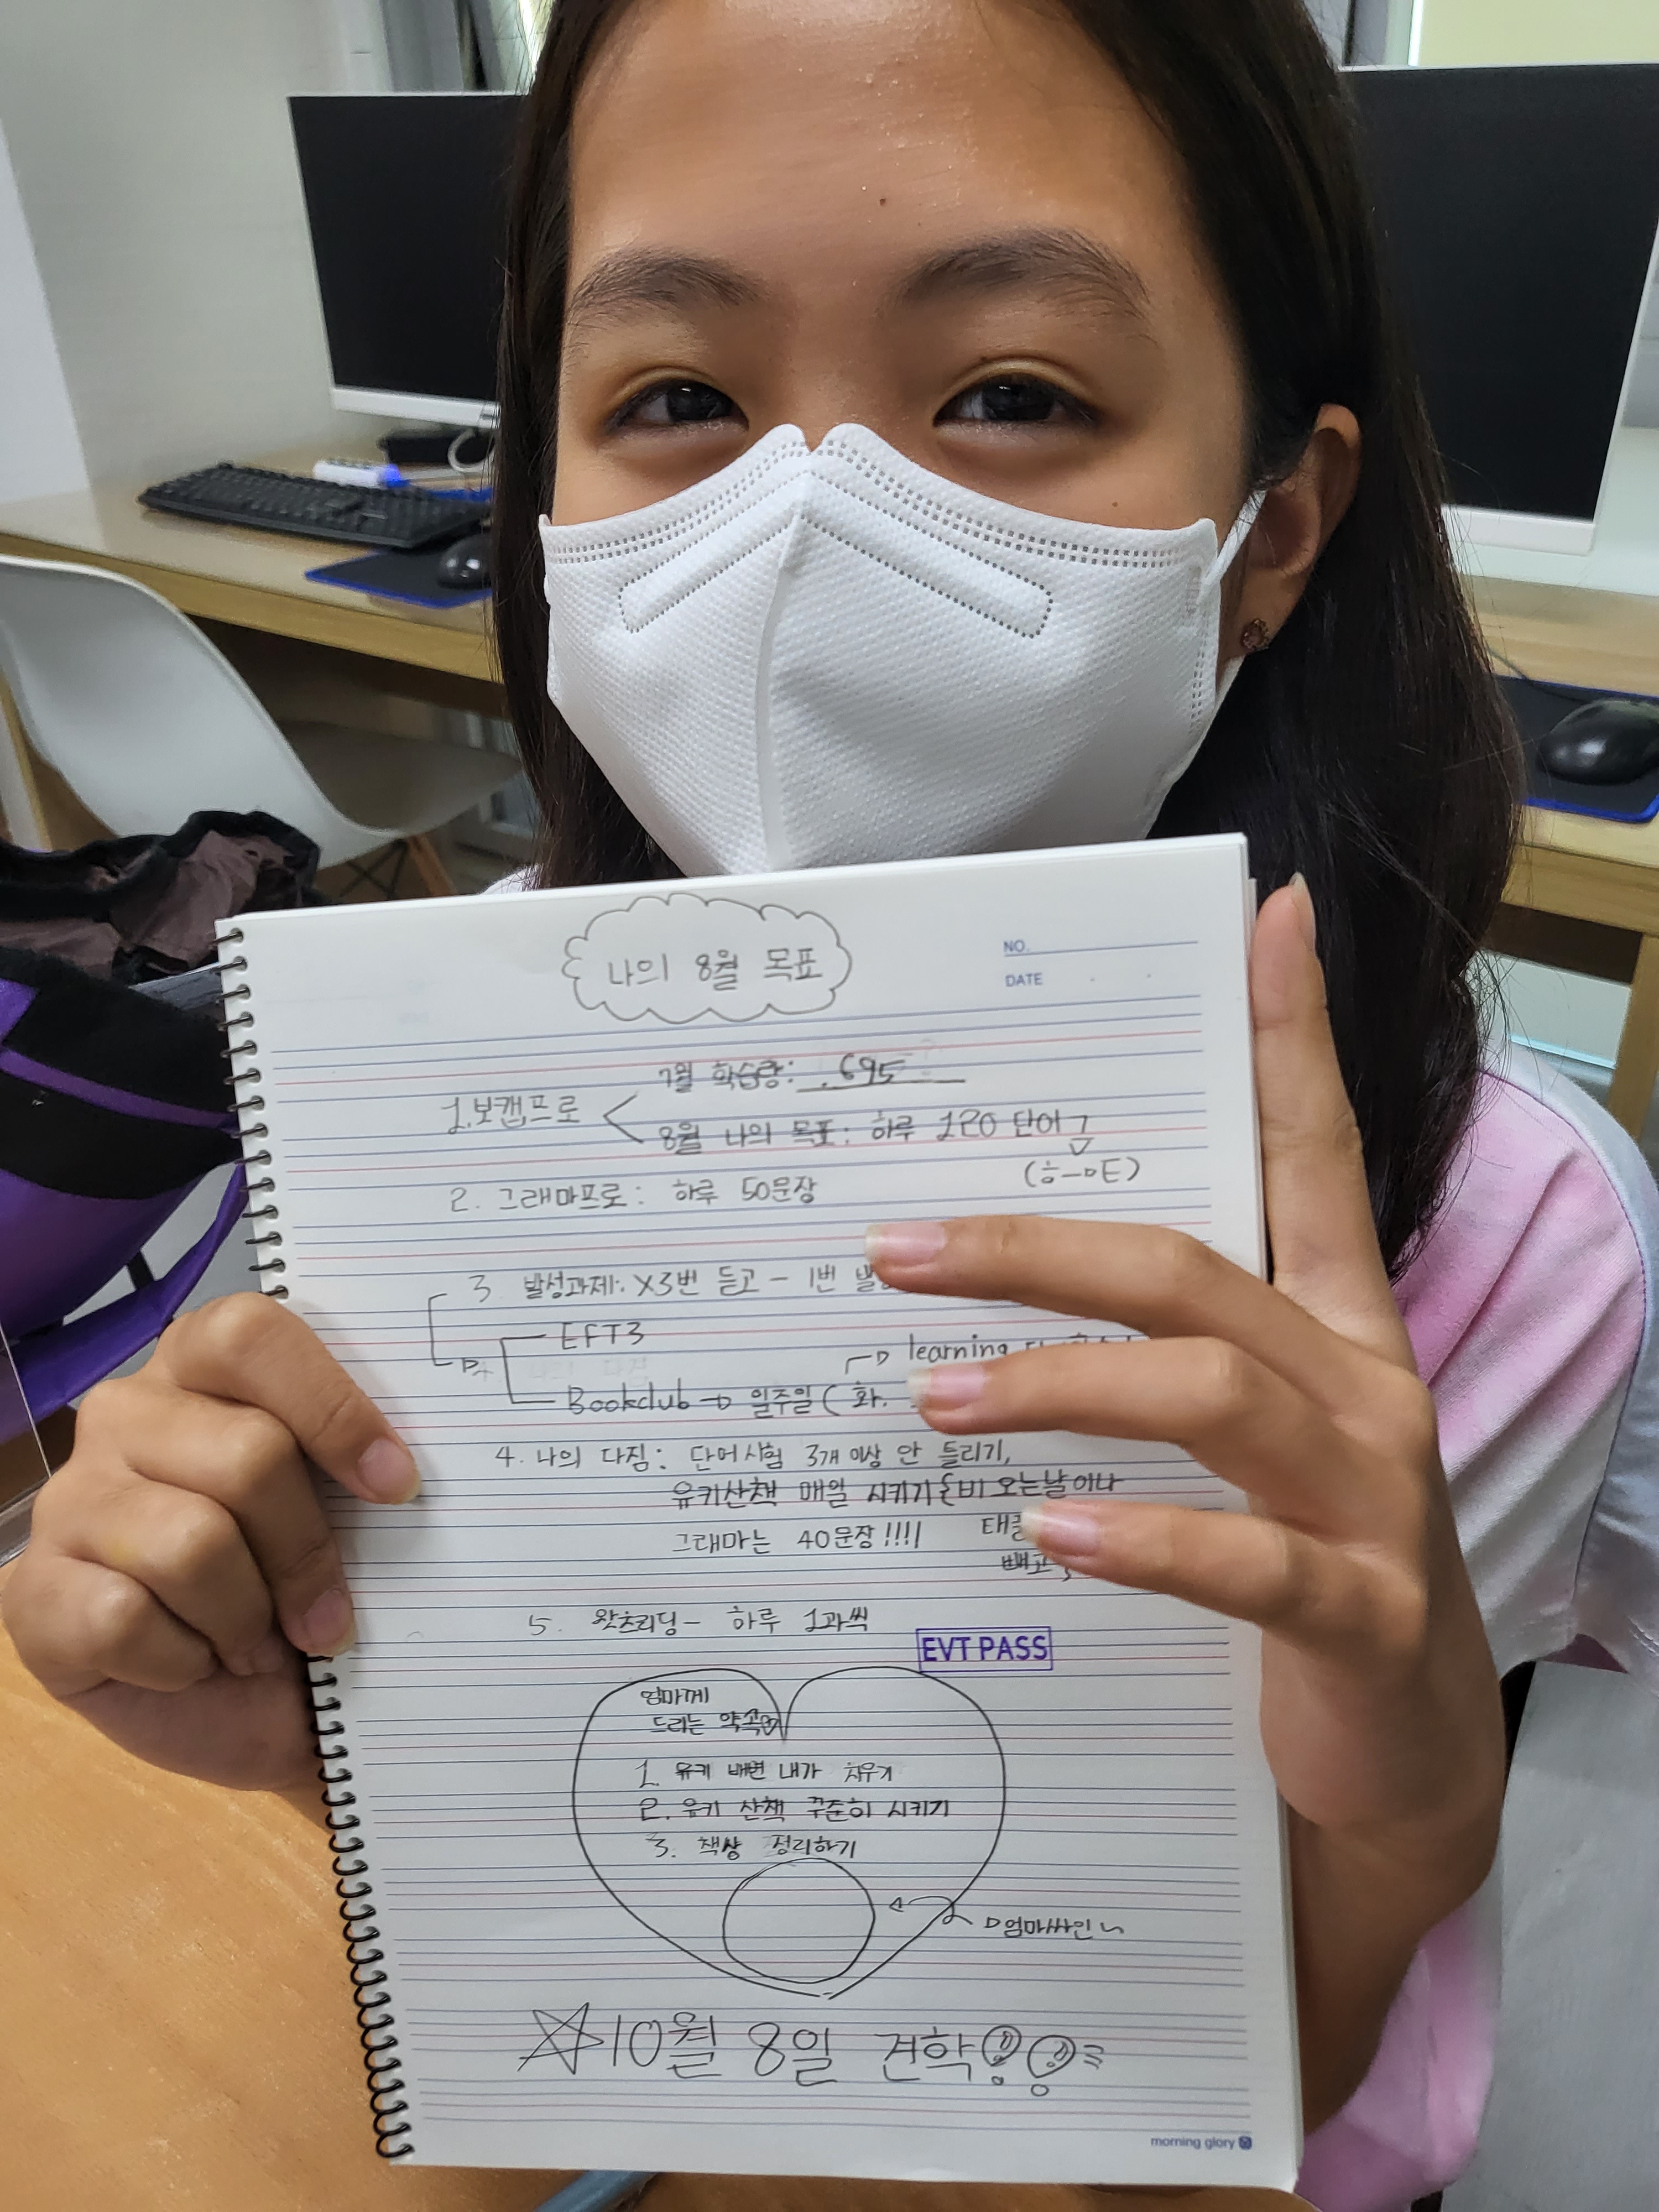 나의 8월 목표
NO.
DATE
1. 보캡프로
7월 학습량: 695
8월 나의 목표: 하루 120 단어
2. 그래마프로: 하루 50문장
3. 발성과제: X3번 듣고 - 1번
EFT3
learning
Bookclub → 일주일 ( 화.
4. 나의 다짐: 단어시험 3개 이상 안 틀리기,
유키산책 매일 시키기 비 오는날이나
그래마는 40문장!!!!
빼고
5. 왓츠리딩 - 하루 1과씩
EVT PASS
엄마께
드리는 약속
1. 유키 배변 내가 치우기
2. 유키 산책 꾸준히 시키기
3. 책상 정리하기
엄마싸인~
☆10월 8일 견학
morning glory